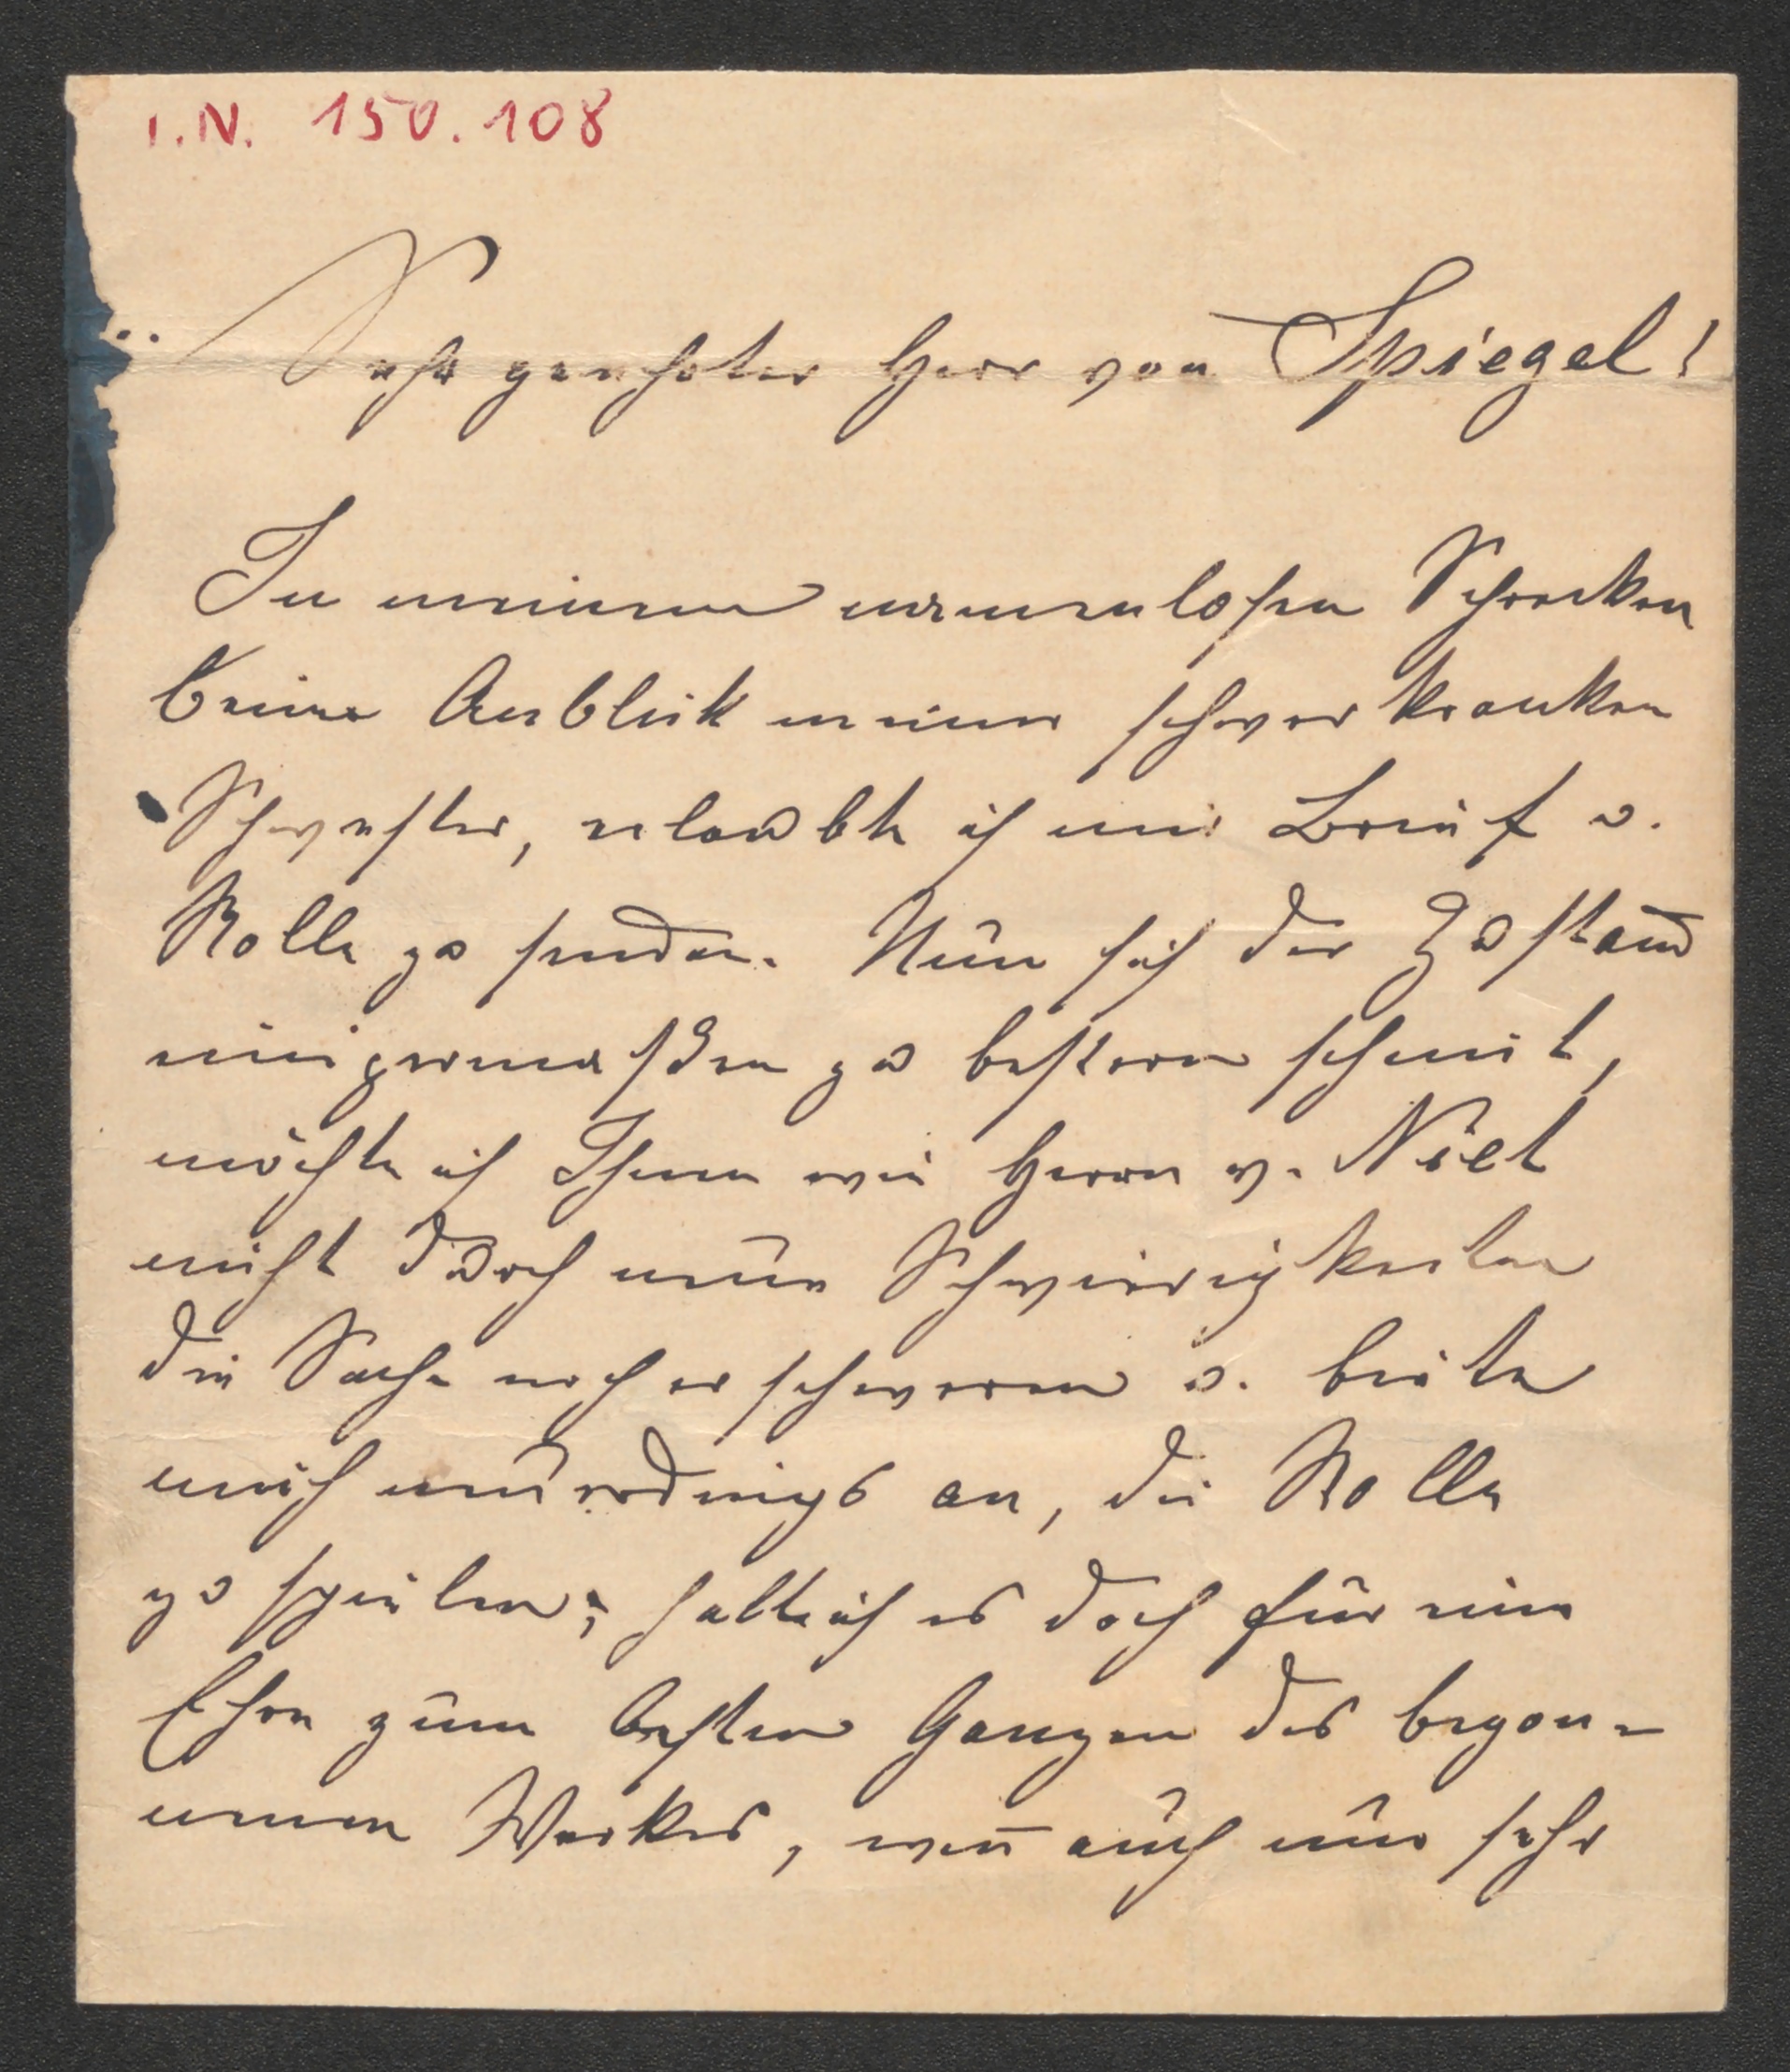 I.N. 150.108
Sehr geehrter Herr von Spiegel!
In meinem namenlosen Schrecken
beim Anblick meiner schwer kranken
Schwester, erlaubte ich mir Brief u.
Rolle zu senden. Nun sich der Zustand
einigermaßen zu bessern scheint,
möchte ich Ihnen wie Herrn v. Niet
nicht durch neue Schwierigkeiten
die Sache noch erschweren u. biete
mich neuerdings an, die Rolle
zu spielen; halte ich es doch für eine
Ehre zum besten Ganzen des begon-
nenen Werkes, wen̄ auch nur sehr